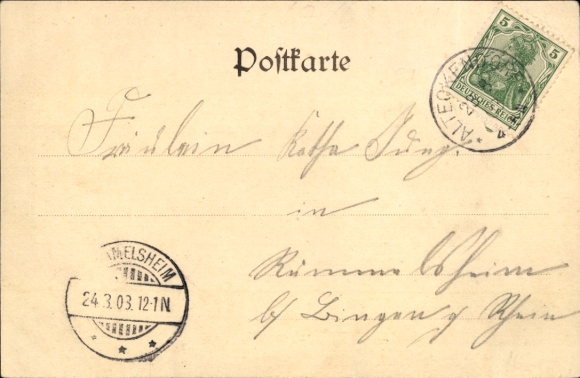 Postkarte
5 5
DEUTSCHES REICH
*ALTECKEND
Fräulein Katha Jung
in
Rümmelsheim
b/ Bingen a/ Rhein
MELSHEIM
24.3.03. 12-1 N.